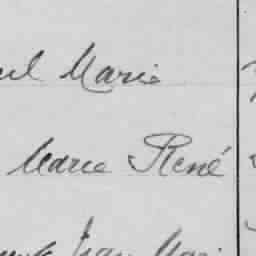 Marie
Marie René
Jean Mari